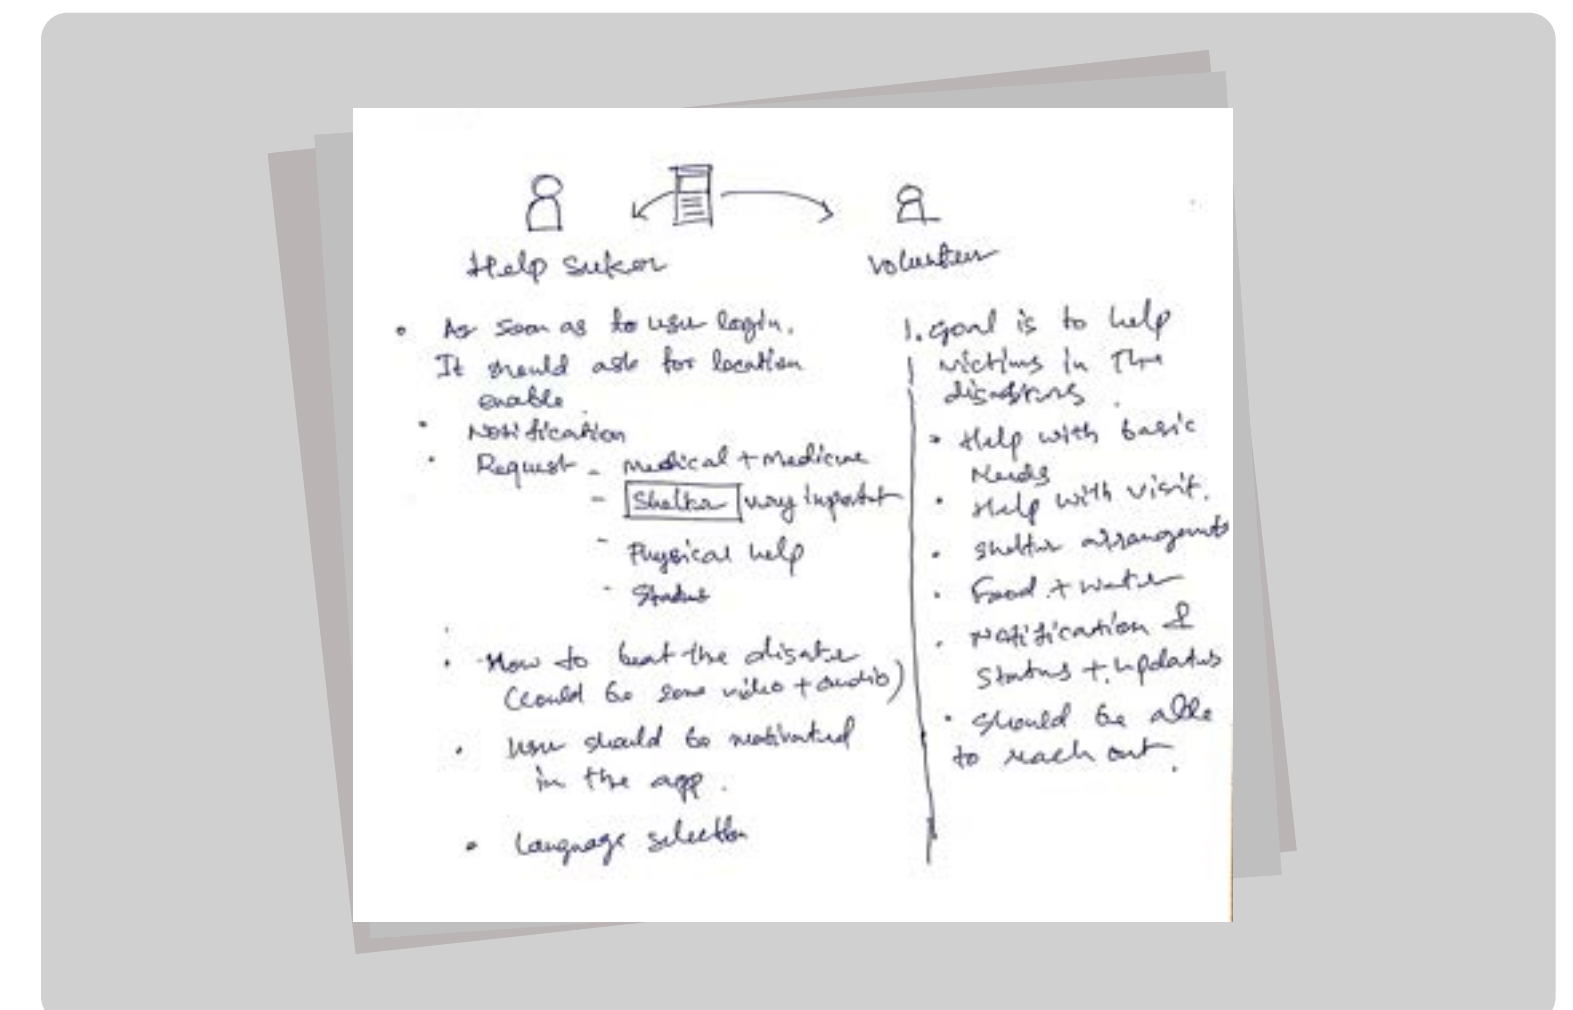 Help Seeker
• As soon as to user login.
It should ask for location
enable
• Notification
• Request - Medical + Medicine
- Shelter very important
- Physical help
- Status
• How to beat the disaster
(could be some video + audio)
• User should be motivated
in the app.
• Language selection
Volunteer
1. Goal is to help
victims in the
disasters.
• Help with basic
Needs
• Help with visit.
• Shelter arrangements
• Food + water
• Notification &
Status + updates
• Should be able
to reach out.